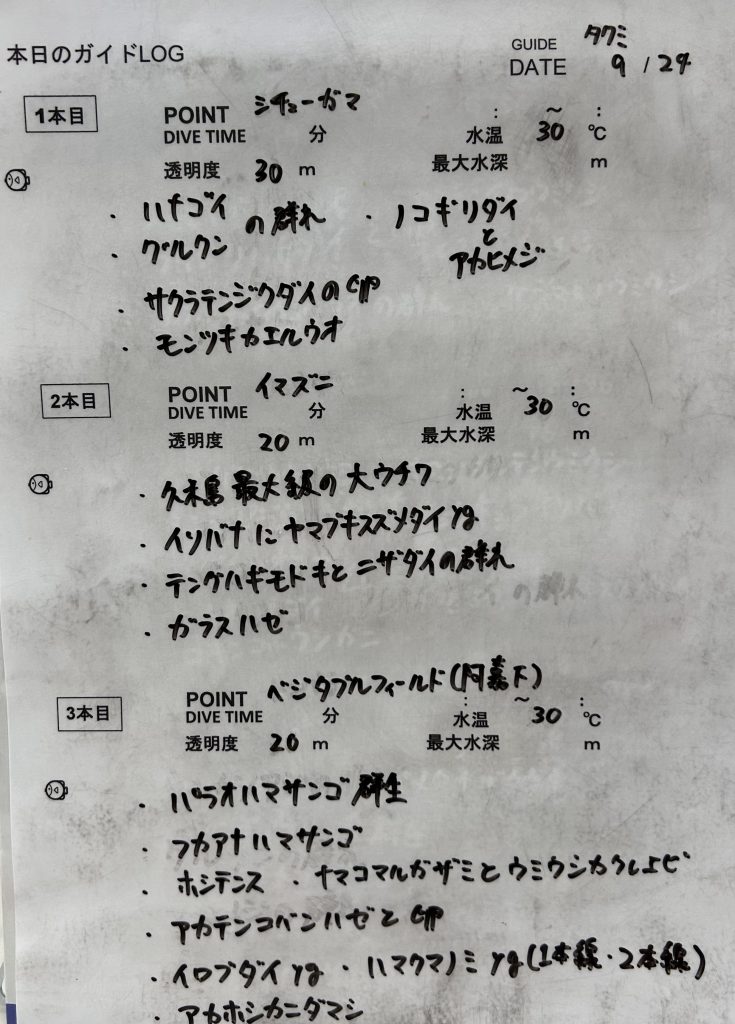 本日のガイドLOG
GUIDE タクミ
DATE 9 / 24
1本目
POINT シチューガマ : ~ :
DIVE TIME 分 水温 30 ℃
透明度 30 m 最大水深 m
・ハナゴイ
・グルクン の群れ
・ノコギリダイ
と
アカヒメジ
・サクラテンジクダイの卵
・モンツキカエルウオ
2本目
POINT イマズニ : ~ :
DIVE TIME 分 水温 30 ℃
透明度 20 m 最大水深 m
・久米島最大級の大ウチワ
・イソバナにヤマブキスズメダイyg
・テングハギモドキとニザダイの群れ
・ガラスハゼ
3本目
POINT ベジタブルフィールド(阿嘉下) : ~ :
DIVE TIME 分 水温 30 ℃
透明度 20 m 最大水深 m
・パラオハマサンゴ群生
・フカアナハマサンゴ
・ホシテンス ・ナマコマルガザミとウミウシカクレエビ
・アカテンコベンハゼと卵
・イロブダイyg ・ハマクマノミyg(1本線・2本線)
・アカホシカニダマシ